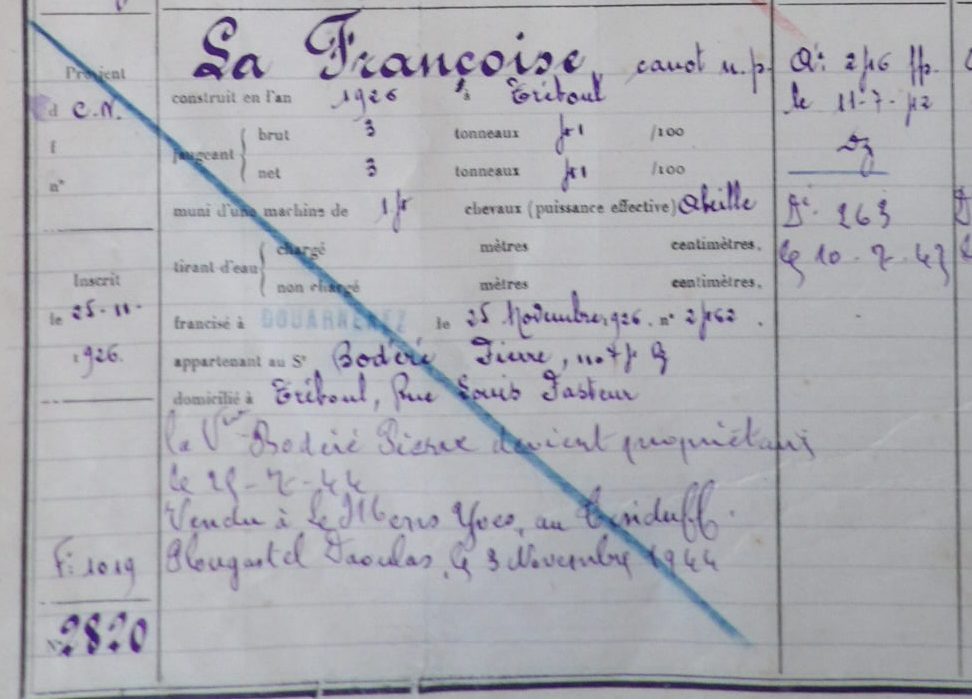 La Françoise, canot n.p.
Provient
d C.N.
f
n°
construit en l'an 1926 à Tréboul
jaugeant
brut 3 tonneaux /100
net 3 tonneaux /100
muni d'une machine de chevaux (puissance effective) Abeille
tirant d'eau
chargé mètres centimètres.
non chargé mètres centimètres.
Inscrit
le 25-11-
1926.
francisé à DOUARNENEZ le 25 Novembre 1926. n°
appartenant au Sr Bodéré Pierre,
domicilié à Tréboul, Rue Louis Pasteur
la Vve Bodéré Pierre devient propriétaire
le
Vendu à Yves, au Tinduff.
Plougastel Daoulas, le 3 Novembre 1944
F: 1019
N° 2820
le 11-7-
Dz
263